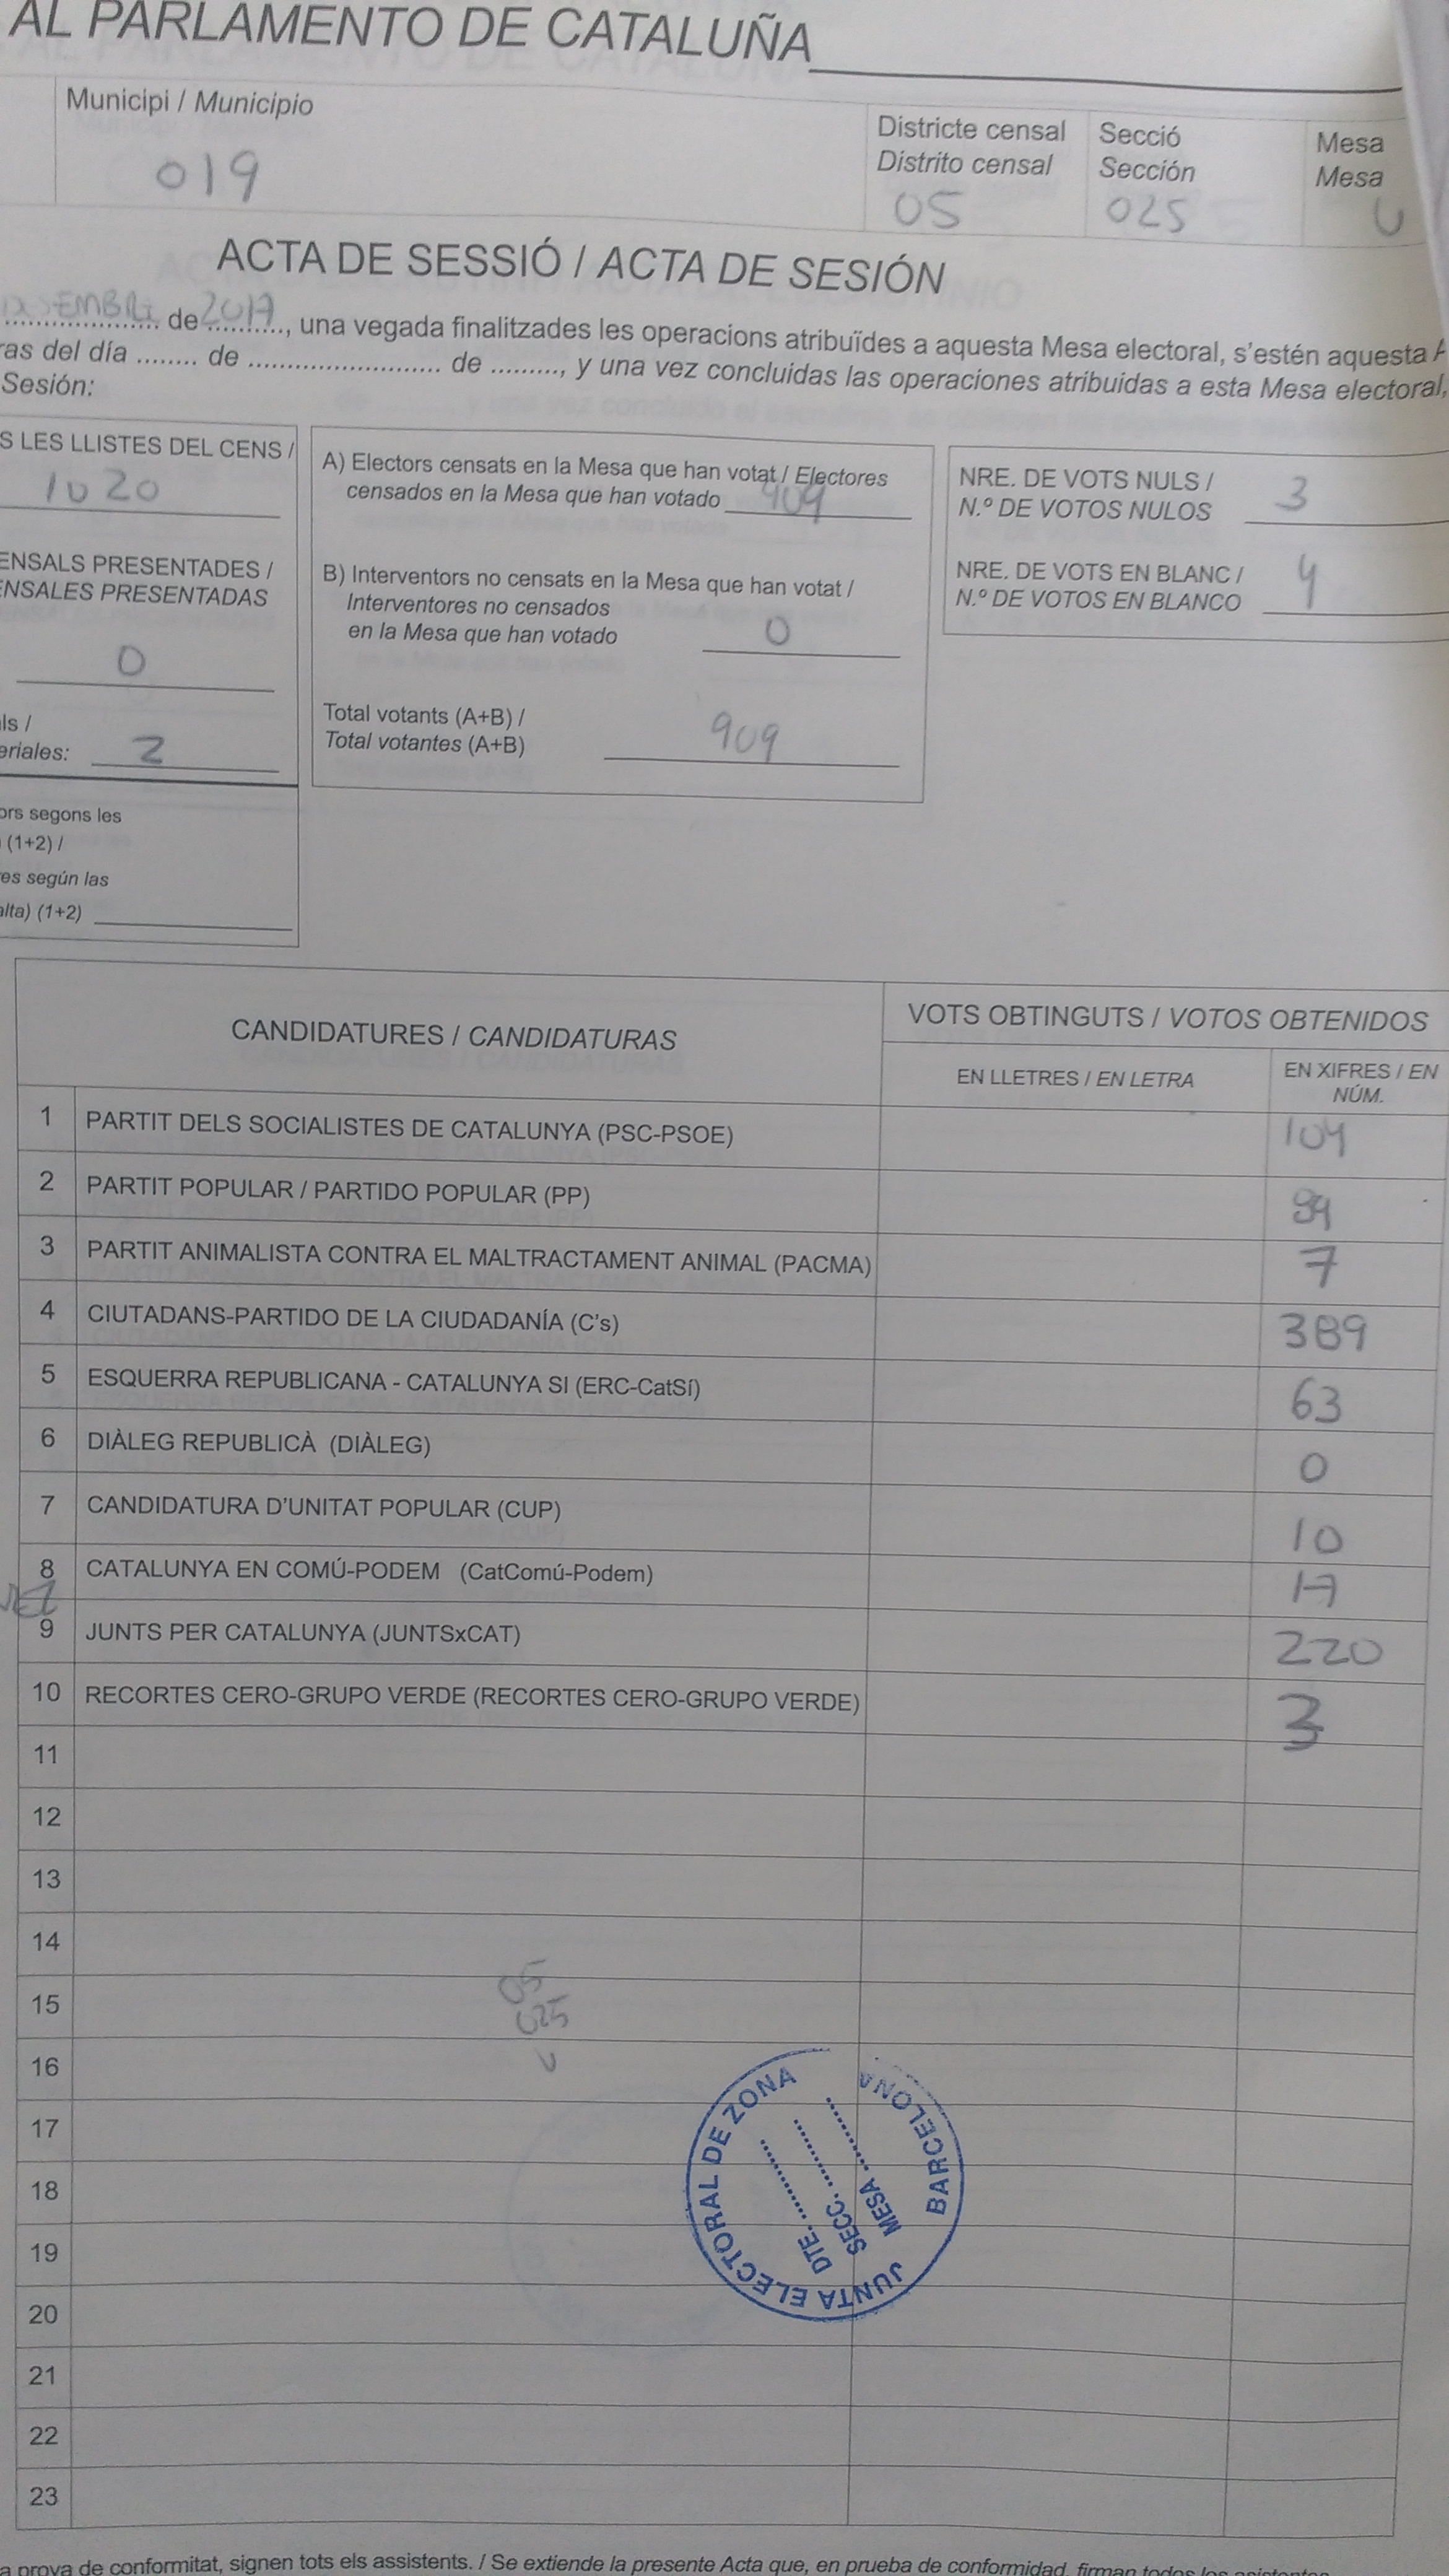 AL PARLAMENTO DE CATALUÑA
Municipi / Municipio
019
Districte censal
Distrito censal
05
Secció
Sección
025
Mesa
Mesa
U
ACTA DE SESSIÓ / ACTA DE SESIÓN
de 2017, una vegada finalitzades les operacions atribuïdes a aquesta Mesa electoral, s'estén aquesta
ras del día ........ de ........................ de ........., y una vez concluidas las operaciones atribuidas a esta Mesa electoral,
Sesión:
S LES LLISTES DEL CENS /
1020
ENSALS PRESENTADES /
ENSALES PRESENTADAS
0
als /
eriales: 2
ors segons les
(1+2) /
es según las
alta) (1+2)
A) Electors censats en la Mesa que han votat / Electores
censados en la Mesa que han votado 909
B) Interventors no censats en la Mesa que han votat /
Interventores no censados
en la Mesa que han votado 0
Total votants (A+B) /
Total votantes (A+B) 909
NRE. DE VOTS NULS /
N.º DE VOTOS NULOS 3
NRE. DE VOTS EN BLANC /
N.º DE VOTOS EN BLANCO 4
CANDIDATURES / CANDIDATURAS
VOTS OBTINGUTS / VOTOS OBTENIDOS
EN LLETRES / EN LETRA
EN XIFRES / EN
NÚM.
1 PARTIT DELS SOCIALISTES DE CATALUNYA (PSC-PSOE) 104
2 PARTIT POPULAR / PARTIDO POPULAR (PP)
3 PARTIT ANIMALISTA CONTRA EL MALTRACTAMENT ANIMAL (PACMA) 7
4 CIUTADANS-PARTIDO DE LA CIUDADANÍA (C's) 389
5 ESQUERRA REPUBLICANA - CATALUNYA SI (ERC-CatSí) 63
6 DIÀLEG REPUBLICÀ (DIÀLEG) 0
7 CANDIDATURA D'UNITAT POPULAR (CUP) 10
8 CATALUNYA EN COMÚ-PODEM (CatComú-Podem) 17
9 JUNTS PER CATALUNYA (JUNTSxCAT) 220
10 RECORTES CERO-GRUPO VERDE (RECORTES CERO-GRUPO VERDE) 3
11
12
13
14
15
16
17
18
19
20
21
22
23
05
025
U
JUNTA ELECTORAL DE ZONA
BARCELONA
DTE. ............
SECC. ............
MESA ............
a prova de conformitat, signen tots els assistents. / Se extiende la presente Acta que, en prueba de conformidad, firman todos los asistentes